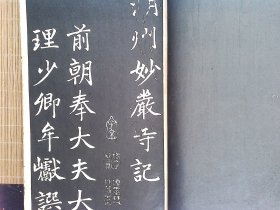 湖州妙嚴寺記
前朝奉大夫大
理少卿牟巘譔